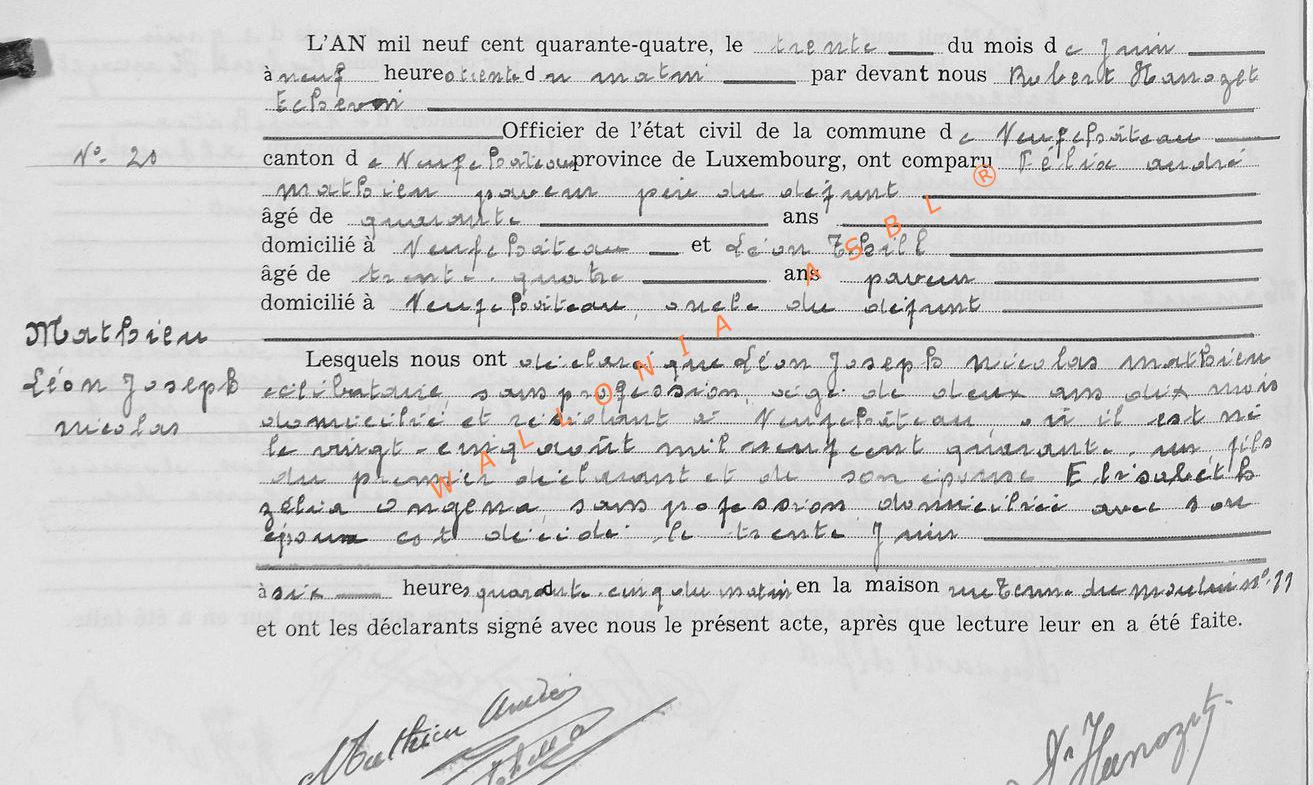 L'AN mil neuf cent quarante-quatre, le trente du mois de Juin
à neuf heures trente du matin par devant nous Robert Hanozet
Echevin
Officier de l'état civil de la commune de Neufchâteau
N° 20
canton de Neufchâteau province de Luxembourg, ont comparu Félix andré
mathieu paveur père du défunt
âgé de quarante ans
domicilié à Neufchâteau et Léon Thill
âgé de trente-quatre ans paveur
domicilié à Neufchâteau, oncle du défunt
Mathieu
Léon Joseph
nicolas
Lesquels nous ont déclaré que Léon Joseph nicolas mathieu
célibataire, sans profession, âgé de deux ans dix mois
domicilié et résidant à Neufchâteau, où il est né
le vingt-cinq août mil neuf cent quarante-un fils
du premier déclarant et de son épouse Elisabeth
zélia Ongena sans profession domiciliée avec son
époux est décédé le trente Juin
à six heures quarante-cinq du matin en la maison rue Terme du moulin n° 11
et ont les déclarants signé avec nous le présent acte, après que lecture leur en a été faite.
Mathieu André
Thill
Hanozet
WALLONIA ASBL ®